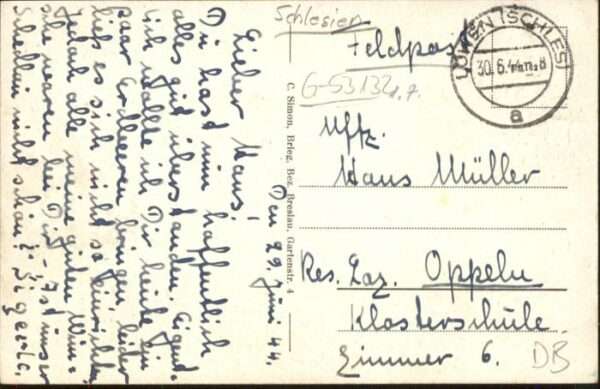 Schlesien
Feldpost
LÖWEN (SCHLES)
30.6.44
a
G-53132
Den 29. Juni 44.
Lieber Hans!
Du hast nun hoffentlich
alles gut überstanden. Eigent-
lich wollte ich Dir heute ein
paar Erdbeeren bringen, leider
ließ es sich nicht so einrichten,
jedoch alle meine guten Wün-
sche waren bei Dir. – Ist unser
nicht schön?
C. Simon, Brieg, Bez. Breslau, Gartenstr. 4
Uffz.
Hans Müller
Res. Laz. Oppeln
Klosterschule.
Zimmer 6.
DB